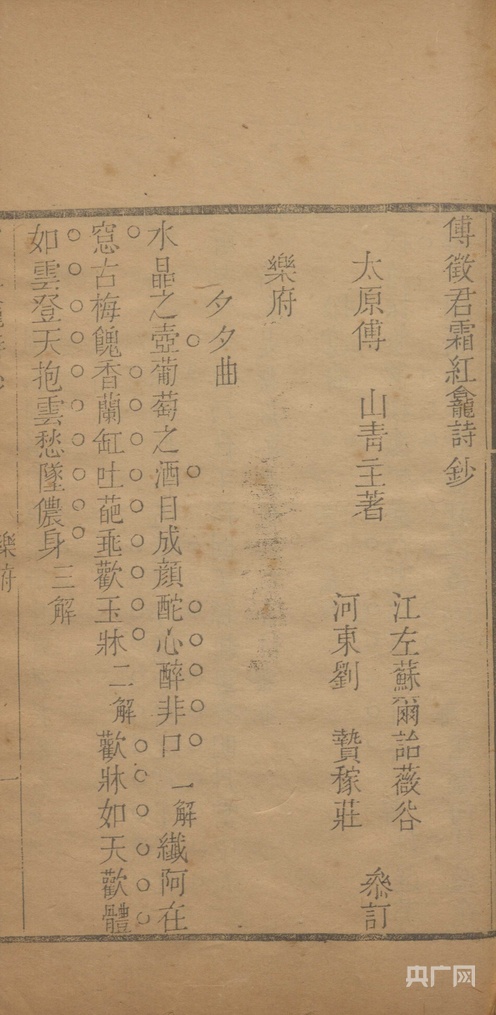 傅徵君霜紅龕詩鈔
太原傅　山青主著
江左蘇爾詒薇谷
河東劉　贄稼莊
叅訂
樂府
夕夕曲
水晶之壺葡萄之酒目成顏酡心醉非口一解纎阿在
窓古梅餽香蘭缸吐葩乖歡玉牀二解歡牀如天歡體
如雲登天抱雲愁墜儂身三解
樂府
一
央广网